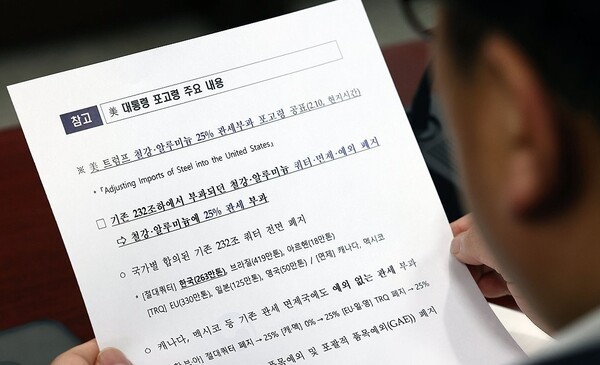 참고
美 대통령 포고령 주요 내용
※ 美 트럼프 철강·알루미늄 25% 관세부과 포고령 공표(2.10, 현지시간)
* 「Adjusting Imports of Steel into the United States」
□ 기존 232조하에서 부과되던 철강·알루미늄 쿼터·면제·예외 폐지
⇨ 철강·알루미늄에 25% 관세 부과
○ 국가별 합의된 기존 232조 쿼터 전면 폐지
* [절대쿼터] 한국(263만톤), 브라질(419만톤), 아르헨(18만톤)
[TRQ] EU(330만톤), 일본(125만톤), 영국(50만톤) / [면제] 캐나다, 멕시코
○ 캐나다, 멕시코 등 기존 관세 면제국에도 예외 없는 관세 부과
절대쿼터 폐지→25% [캐·멕] 0%→25% [EU·일·영] TRQ 폐지→25%
품목예외 및 포괄적 품목예외(GAE)) 폐지